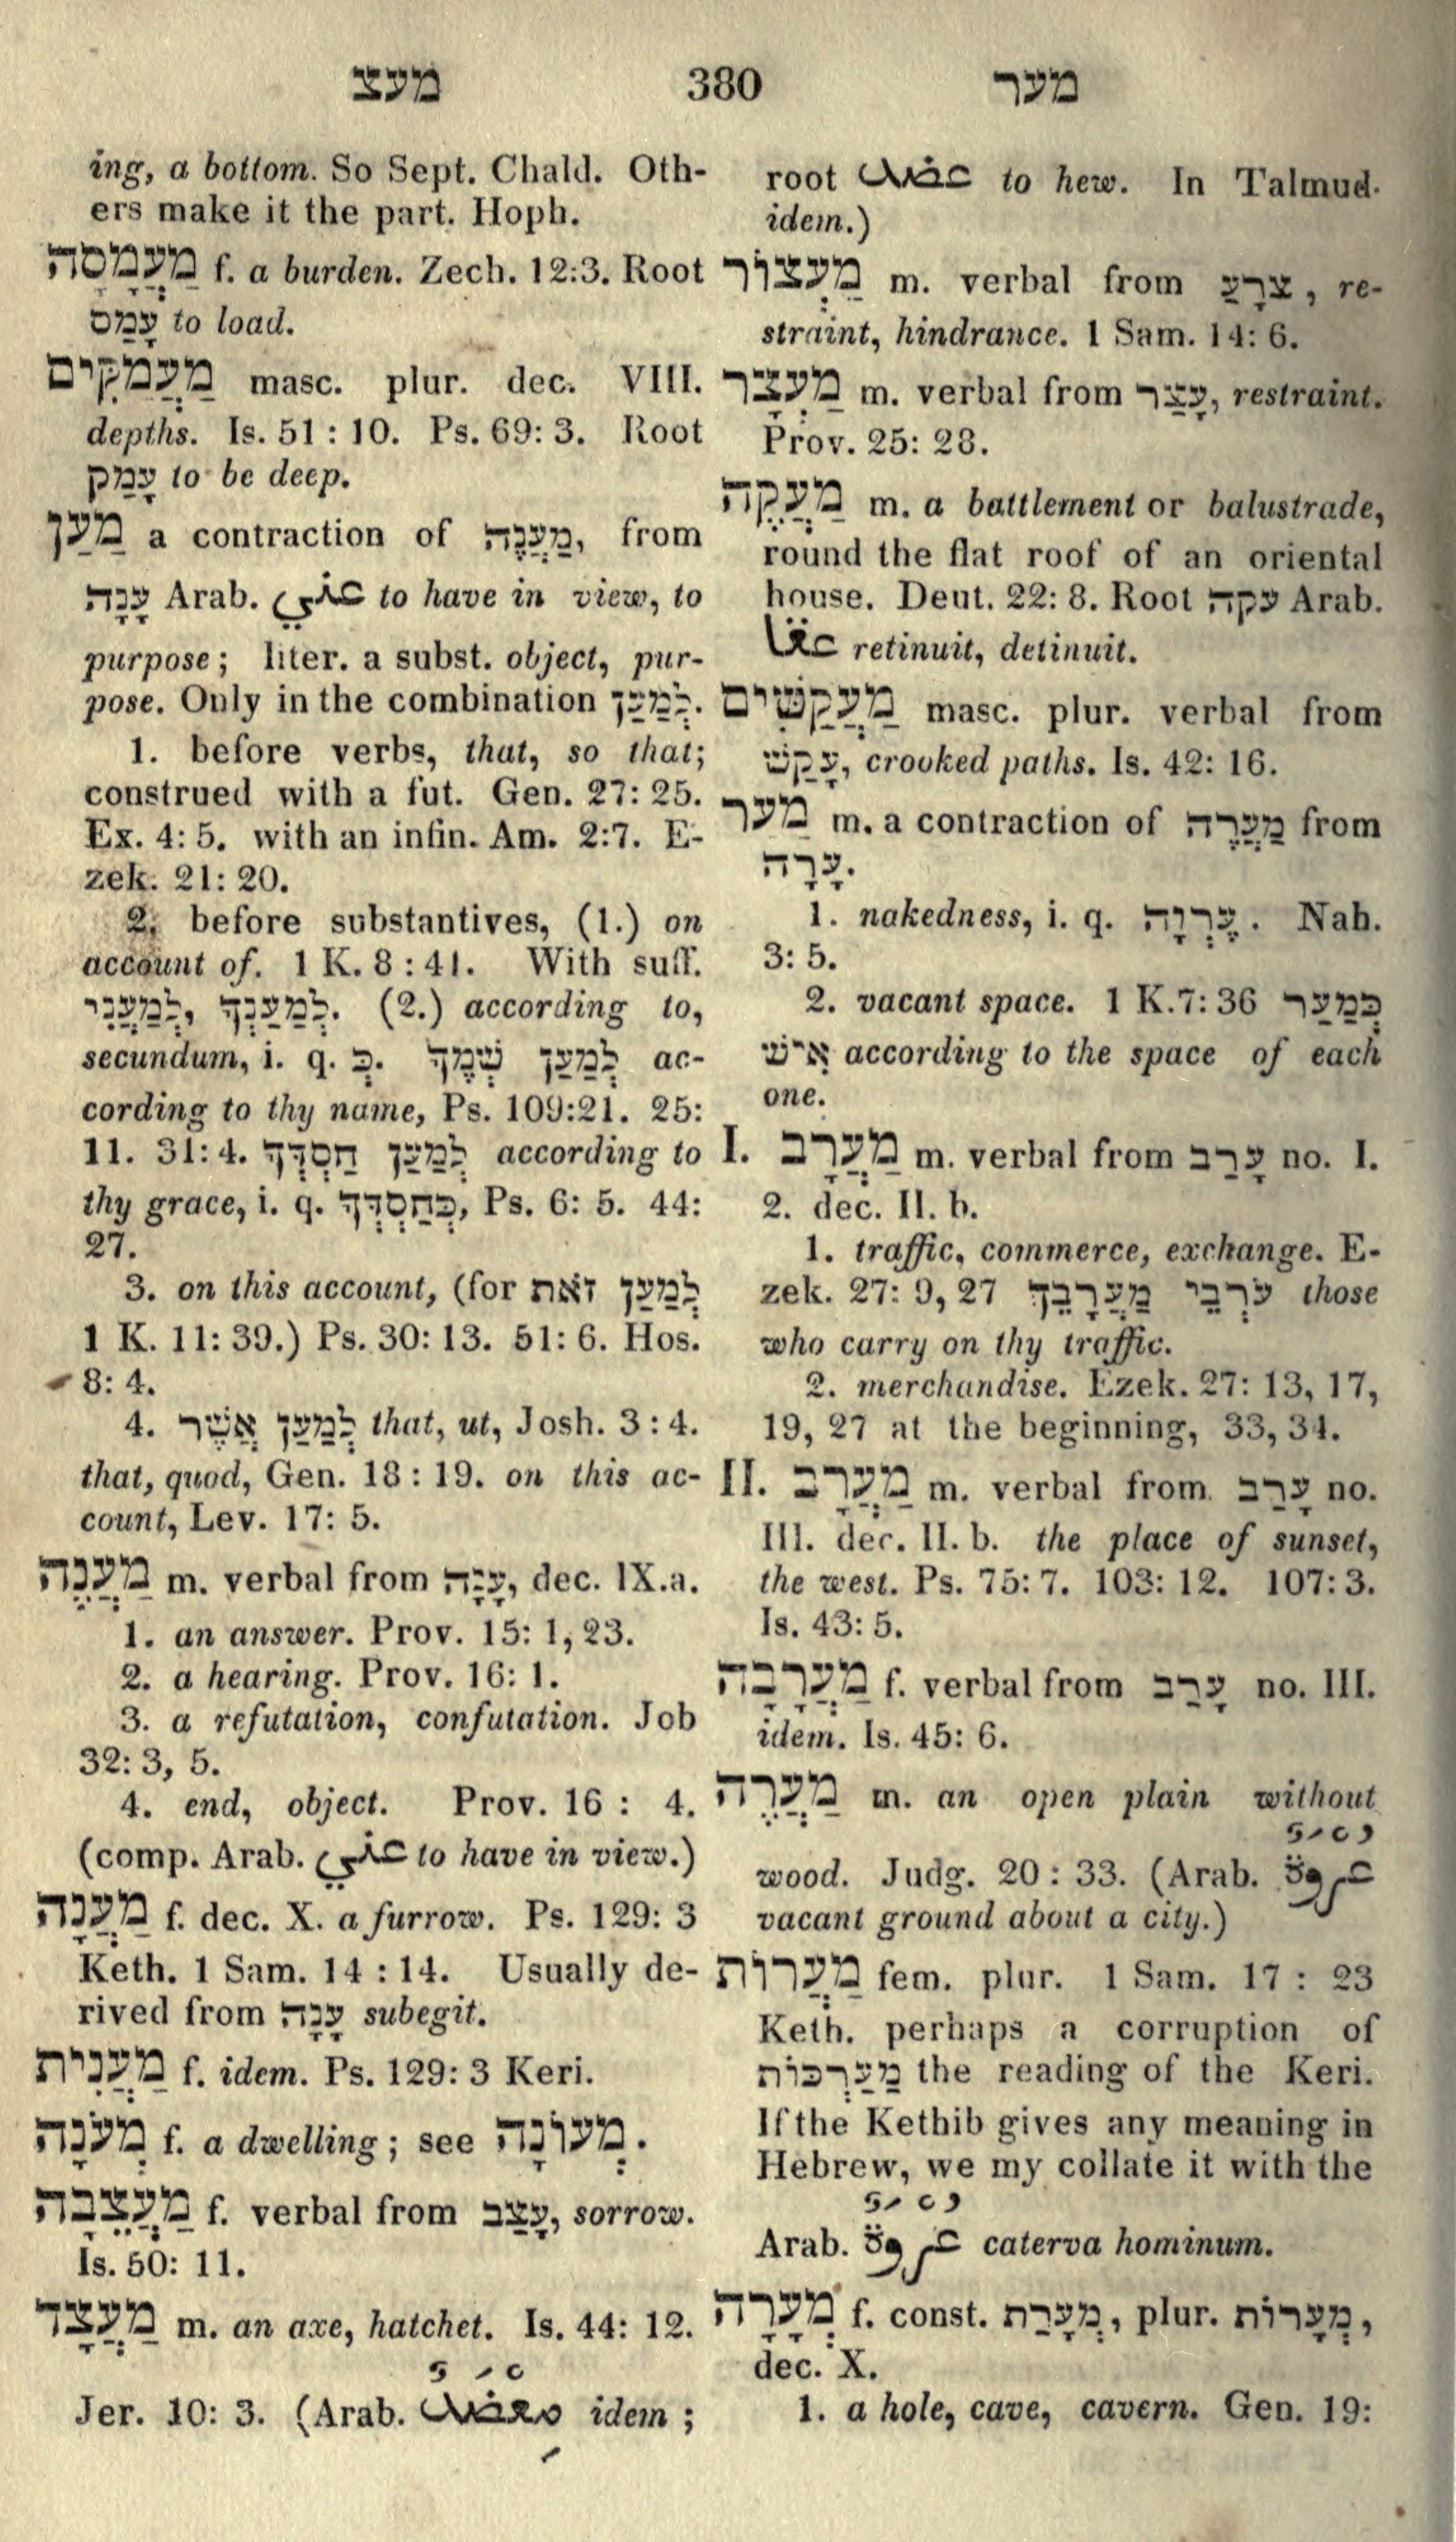 מעצ 380 מער
ing, a bottom. So Sept. Chald. Oth-
ers make it the part. Hoph.
מַעֲמָסָה f. a burden. Zech. 12:3. Root
עָמַס to load.
מַעֲמַקִּים masc. plur. dec. VIII.
depths. Is. 51 : 10. Ps. 69: 3. Root
עָמַק to be deep.
מַעַן a contraction of מַעֲנֶה, from
עָנָה Arab. عَنَي to have in view, to
purpose; liter. a subst. object, pur-
pose. Only in the combination לְמַעַן.
1. before verbs, that, so that;
construed with a fut. Gen. 27: 25.
Ex. 4: 5. with an infin. Am. 2:7. E-
zek. 21: 20.
2. before substantives, (1.) on
account of. 1 K. 8 : 41. With suff.
לְמַעֲנִי, לְמַעַנְךָ. (2.) according to,
secundum, i. q. כְּ. לְמַעַן שְׁמֶךָ ac-
cording to thy name, Ps. 109:21. 25:
11. 31: 4. לְמַעַן חַסְדְּךָ according to
thy grace, i. q. כְּחַסְדְּךָ, Ps. 6: 5. 44:
27.
3. on this account, (for לְמַעַן זֹאת
1 K. 11: 39.) Ps. 30: 13. 51: 6. Hos.
8: 4.
4. לְמַעַן אֲשֶׁר that, ut, Josh. 3 : 4.
that, quod, Gen. 18 : 19. on this ac-
count, Lev. 17: 5.
מַעֲנֶה m. verbal from עָנָה, dec. IX.a.
1. an answer. Prov. 15: 1, 23.
2. a hearing. Prov. 16: 1.
3. a refutation, confutation. Job
32: 3, 5.
4. end, object. Prov. 16 : 4.
(comp. Arab. عَنَي to have in view.)
מַעֲנָה f. dec. X. a furrow. Ps. 129: 3
Keth. 1 Sam. 14 : 14. Usually de-
rived from עָנָה subegit.
מַעֲנִית f. idem. Ps. 129: 3 Keri.
מְעֹנָה f. a dwelling; see מְעוֹנָה.
מַעֲצֵבָה f. verbal from עָצַב, sorrow.
Is. 50: 11.
מַעֲצָד m. an axe, hatchet. Is. 44: 12.
Jer. 10: 3. (Arab. مِعْضَدٌ idem;
root عضد to hew. In Talmud.
idem.)
מַעְצוֹר m. verbal from צרָעַ, re-
straint, hindrance. 1 Sam. 14: 6.
מַעְצָר m. verbal from עָצַר, restraint.
Prov. 25: 28.
מַעֲקֶה m. a battlement or balustrade,
round the flat roof of an oriental
house. Deut. 22: 8. Root עקה Arab.
عقا retinuit, detinuit.
מַעֲקַשִּׁים masc. plur. verbal from
עָקַשׁ, crooked paths. Is. 42: 16.
מַער m. a contraction of מַעֲרֶה from
עָרָה.
1. nakedness, i. q. עֶרְוָה. Nah.
3: 5.
2. vacant space. 1 K.7: 36 כְּמַעַר
אִישׁ according to the space of each
one.
I. מַעֲרָב m. verbal from עָרַב no. I.
2. dec. II. b.
1. traffic, commerce, exchange. E-
zek. 27: 9, 27 עֹרְבֵי מַעֲרָבֵךְ those
who carry on thy traffic.
2. merchandise. Ezek. 27: 13, 17,
19, 27 at the beginning, 33, 34.
II. מַעֲרָב m. verbal from עָרַב no.
III. dec. II. b. the place of sunset,
the west. Ps. 75: 7. 103: 12. 107: 3.
Is. 43: 5.
מַעֲרָבָה f. verbal from עָרַב no. III.
idem. Is. 45: 6.
מַעֲרֶה m. an open plain without
wood. Judg. 20 : 33. (Arab. عُرْوَةٌ
vacant ground about a city.)
מַעֲרוֹת fem. plur. 1 Sam. 17 : 23
Keth. perhaps a corruption of
מַעַרְכוֹת the reading of the Keri.
If the Kethib gives any meaning in
Hebrew, we my collate it with the
Arab. عُرْوَةٌ caterva hominum.
מְעָרָה f. const. מְעָרַת, plur. מְעָרוֹת,
dec. X.
1. a hole, cave, cavern. Gen. 19: